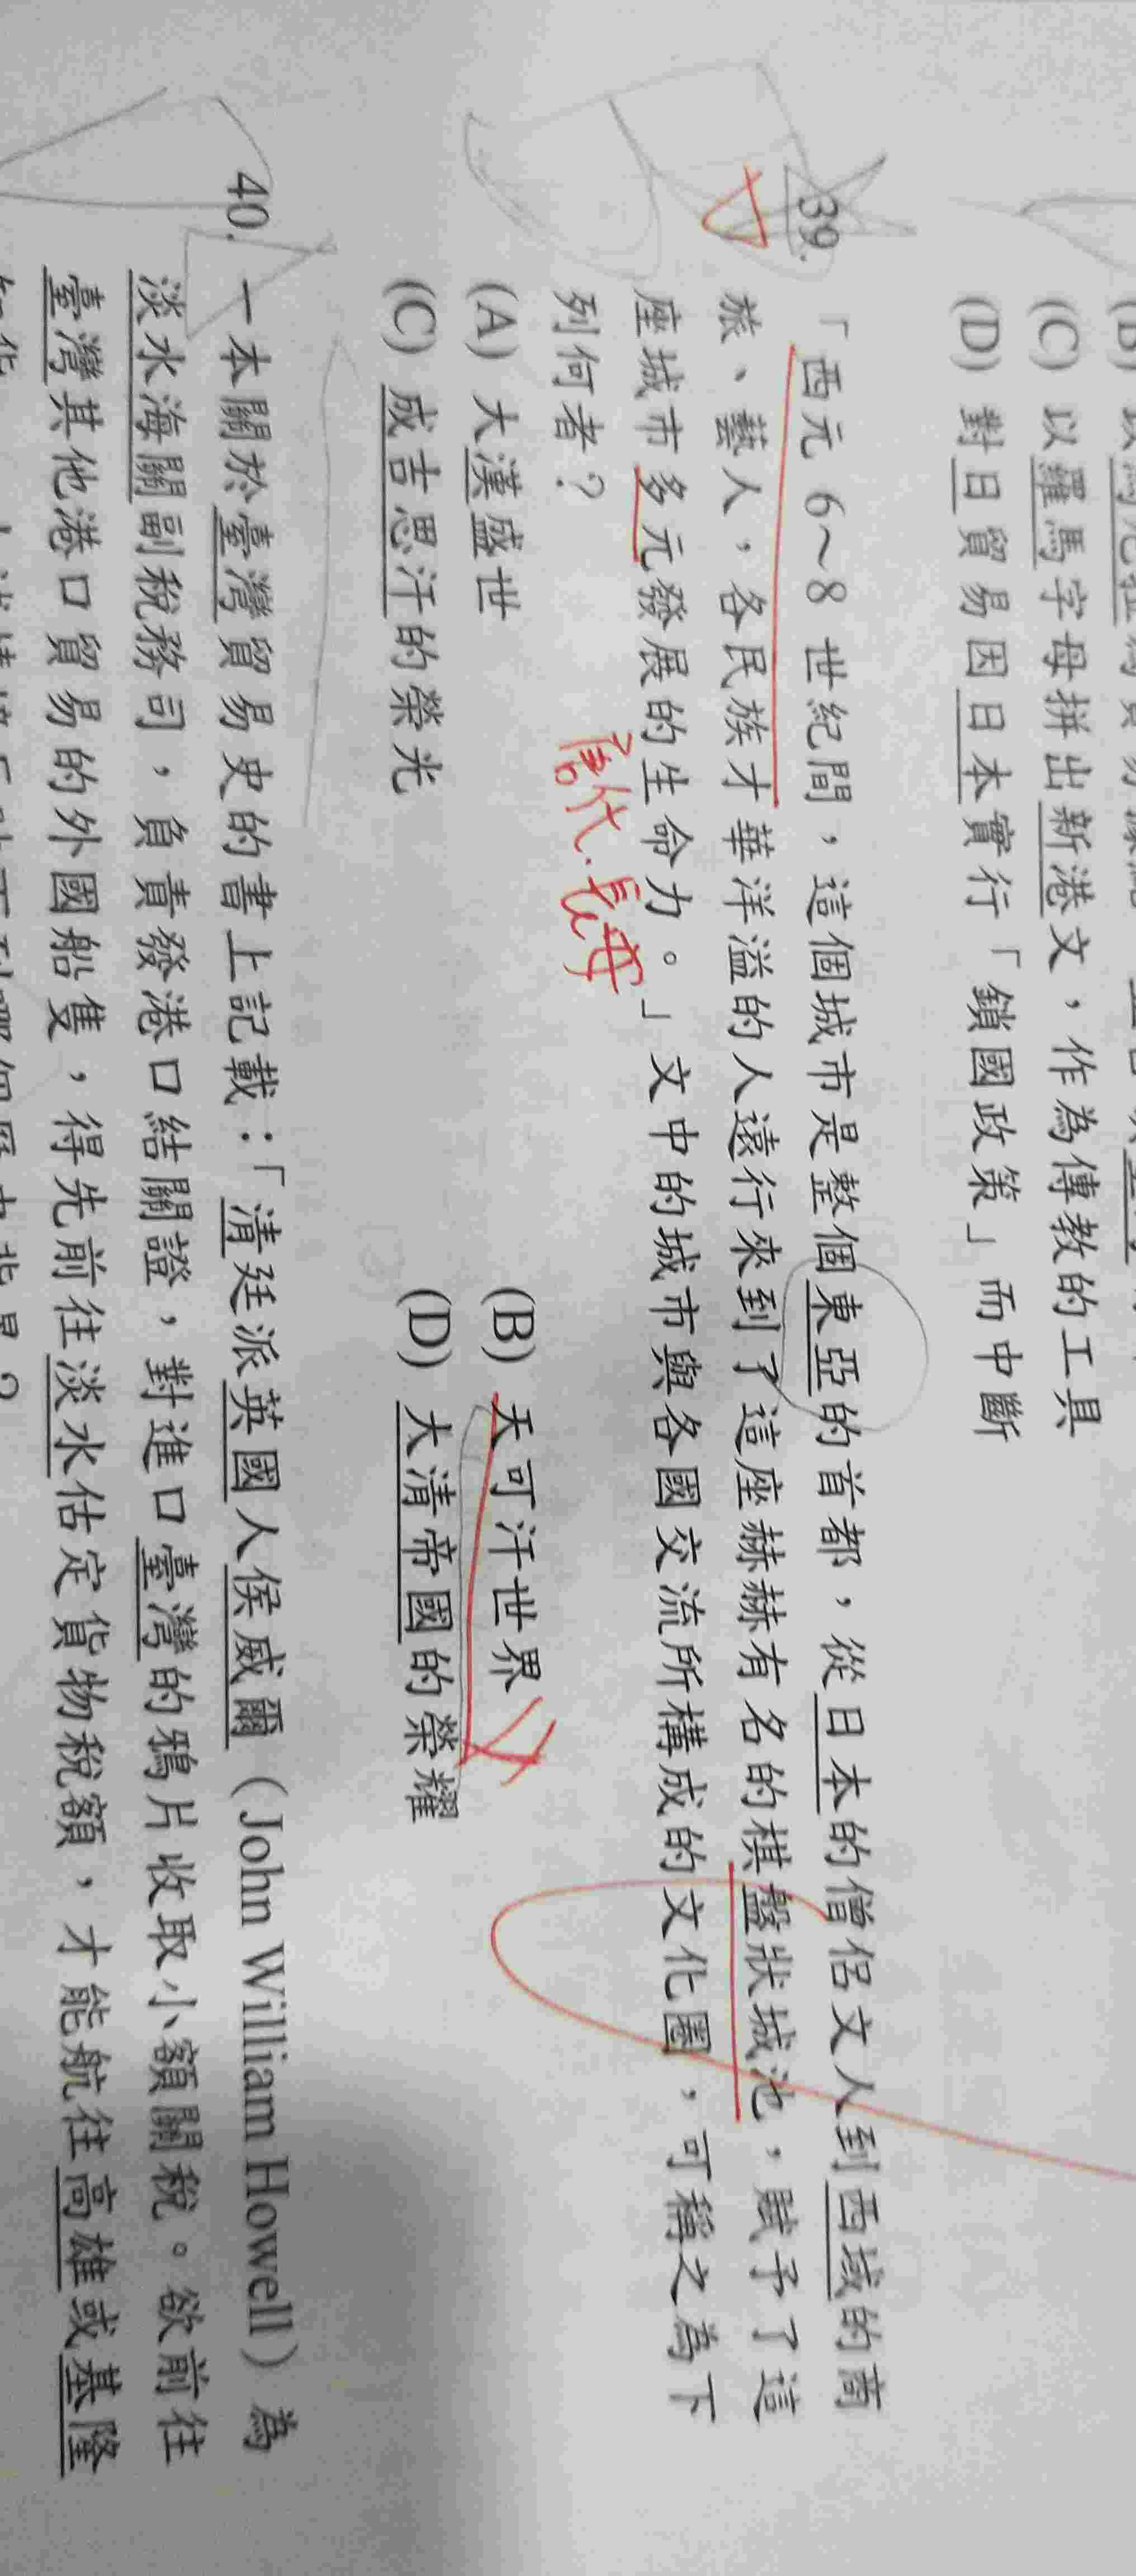 (C) 以羅馬字母拼出新港文，作為傳教的工具
(D) 對日貿易因日本實行「鎖國政策」而中斷
39.「西元 6～8 世紀間，這個城市是整個東亞的首都，從日本的僧侶文人到西域的商
旅、藝人，各民族才華洋溢的人遠行來到了這座赫赫有名的棋盤狀城池，賦予了這
座城市多元發展的生命力。」文中的城市與各國交流所構成的文化圈，可稱之為下
列何者？
唐代.長安
(A) 大漢盛世 (B) 天可汗世界
(C) 成吉思汗的榮光 (D) 大清帝國的榮耀
40. 一本關於臺灣貿易史的書上記載：「清廷派英國人侯威爾（John William Howell）為
淡水海關副稅務司，負責發港口結關證，對進口臺灣的鴉片收取小額關稅。欲前往
臺灣其他港口貿易的外國船隻，得先前往淡水估定貨物稅額，才能航往高雄或基隆